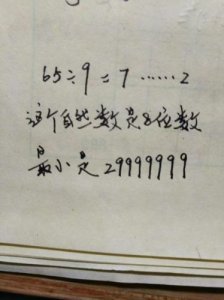 65÷9=7……2
这个自然数是8位数
最小是29999999